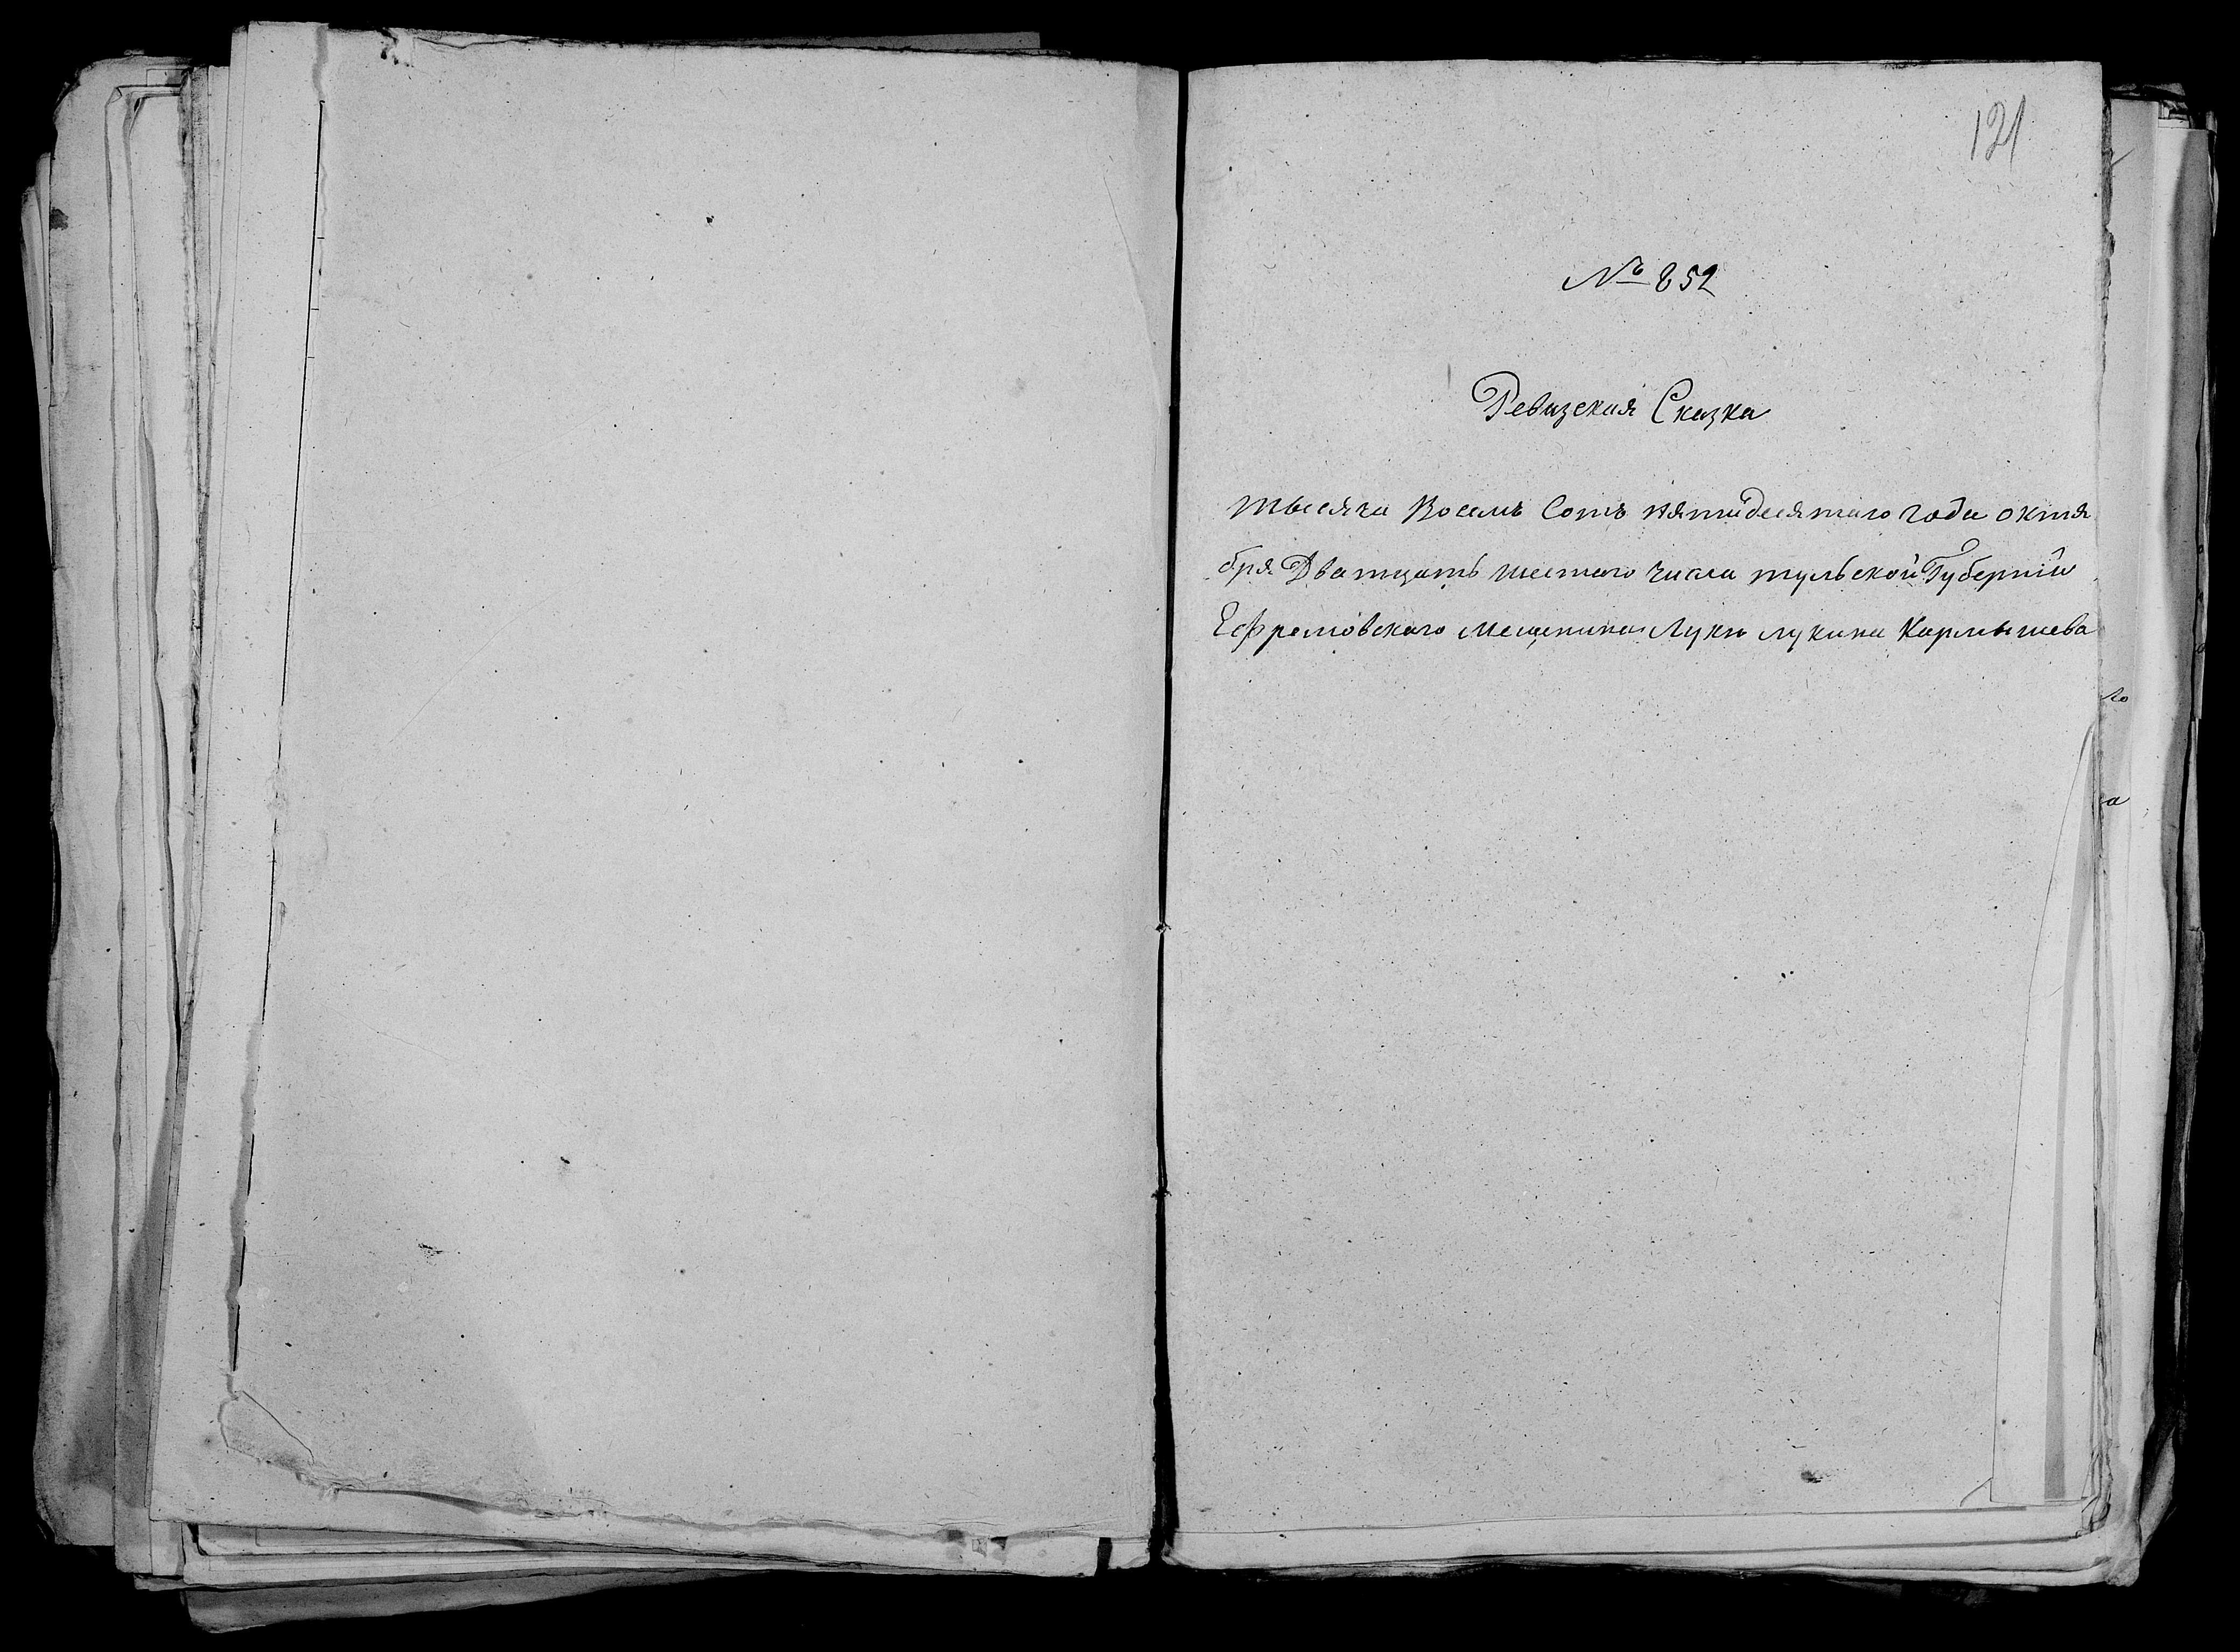 121
№ 852
Ревизская Сказка
тысяча Восемь Сотъ пятидесятаго года октя
бря Дватцать шестаго числа тульской Губерніи
Ефремовскаго мещанина Луки лукина Кармышева